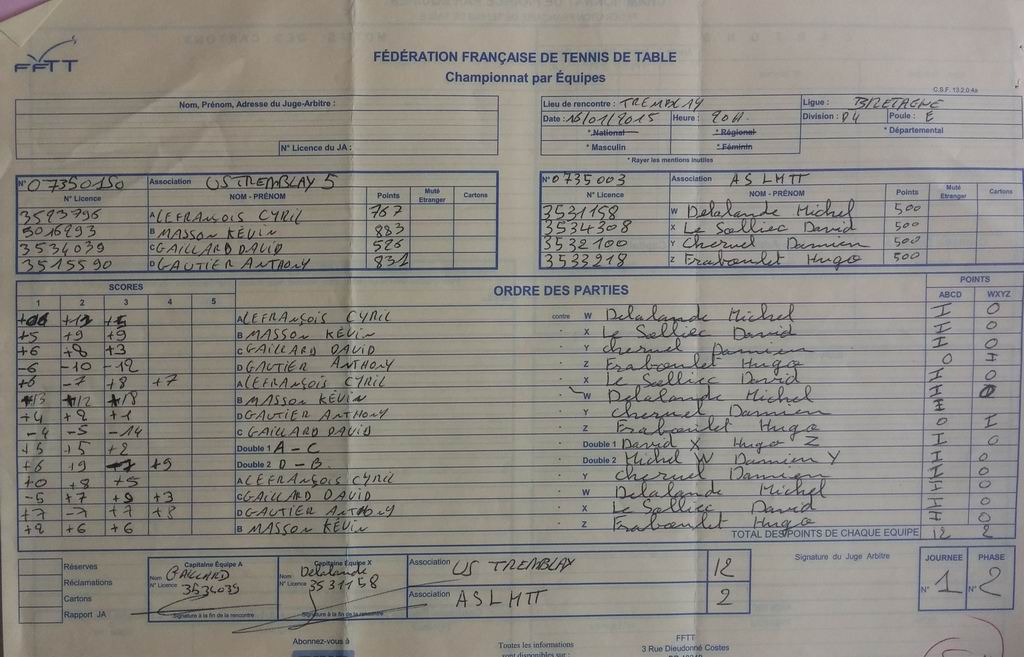 FFTT
FÉDÉRATION FRANÇAISE DE TENNIS DE TABLE
Championnat par Équipes
C.S.F. 13.2.0.4a
Nom, Prénom, Adresse du Juge-Arbitre :
N° Licence du JA :
Lieu de rencontre : TREMBLAY Ligue : BRETAGNE
Date : 16/01/2015 Heure : 20H Division : D4 Poule : E
* National * Régional * Départemental
* Masculin * Féminin
* Rayer les mentions inutiles
N° 07350150 Association US TREMBLAY 5
N° Licence NOM - PRÉNOM Points Muté Etranger Cartons
3523796 A LEFRANÇOIS CYRIL 767
5016293 B MASSON KÉVIN 883
3534039 C GAILLARD DAVID 526
3515590 D GAUTIER ANTHONY 831
N° 0735003 Association AS LMTT
N° Licence NOM - PRÉNOM Points Muté Etranger Cartons
3531158 W Delalande Michel 500
3534308 X Le Solliec David 500
3532100 Y Cheruel Damien 500
3533218 Z Fraboulet Hugo 500
SCORES ORDRE DES PARTIES POINTS
1 2 3 4 5 ABCD WXYZ
A LEFRANÇOIS CYRIL contre W Delalande Michel I 0
+5 +9 +9 B MASSON KÉVIN X Le Solliec David I 0
+6 +8 +3 C GAILLARD DAVID Y Cheruel Damien I 0
-6 -10 -12 D GAUTIER ANTHONY Z Fraboulet Hugo 0 I
+6 -7 +8 +7 A LEFRANÇOIS CYRIL X Le Solliec David I 0
B MASSON KÉVIN W Delalande Michel I 0
+4 +2 +1 D GAUTIER ANTHONY Y Cheruel Damien
-4 -5 -14 C GAILLARD DAVID Z Fraboulet Hugo 0 I
+5 +5 +2 Double 1 A - C Double 1 David X Hugo Z I 0
+6 +9 +9 Double 2 D - B Double 2 Michel W Damien Y I 0
+0 +8 +5 A LEFRANÇOIS CYRIL Y Cheruel Damien I 0
-5 +7 +9 +3 C GAILLARD DAVID W Delalande Michel I 0
+7 -7 +7 +8 D GAUTIER ANTHONY X Le Solliec David I 0
+2 +6 +6 B MASSON KÉVIN Z Fraboulet Hugo I 0
TOTAL DES POINTS DE CHAQUE EQUIPE 12 2
Réserves
Réclamations
Cartons
Rapport JA
Capitaine Équipe A
Nom GAILLARD
N° Licence 3534039
Signature à la fin de la rencontre
Capitaine Équipe X
Nom Delalande
N° Licence 3531158
Signature à la fin de la rencontre
Association US TREMBLAY 12
Association ASLMTT 2
Signature du Juge Arbitre
JOURNEE PHASE
N° 1 N° 2
Abonnez-vous à
Toutes les informations
sont disponibles sur :
FFTT
3 Rue Dieudonné Costes